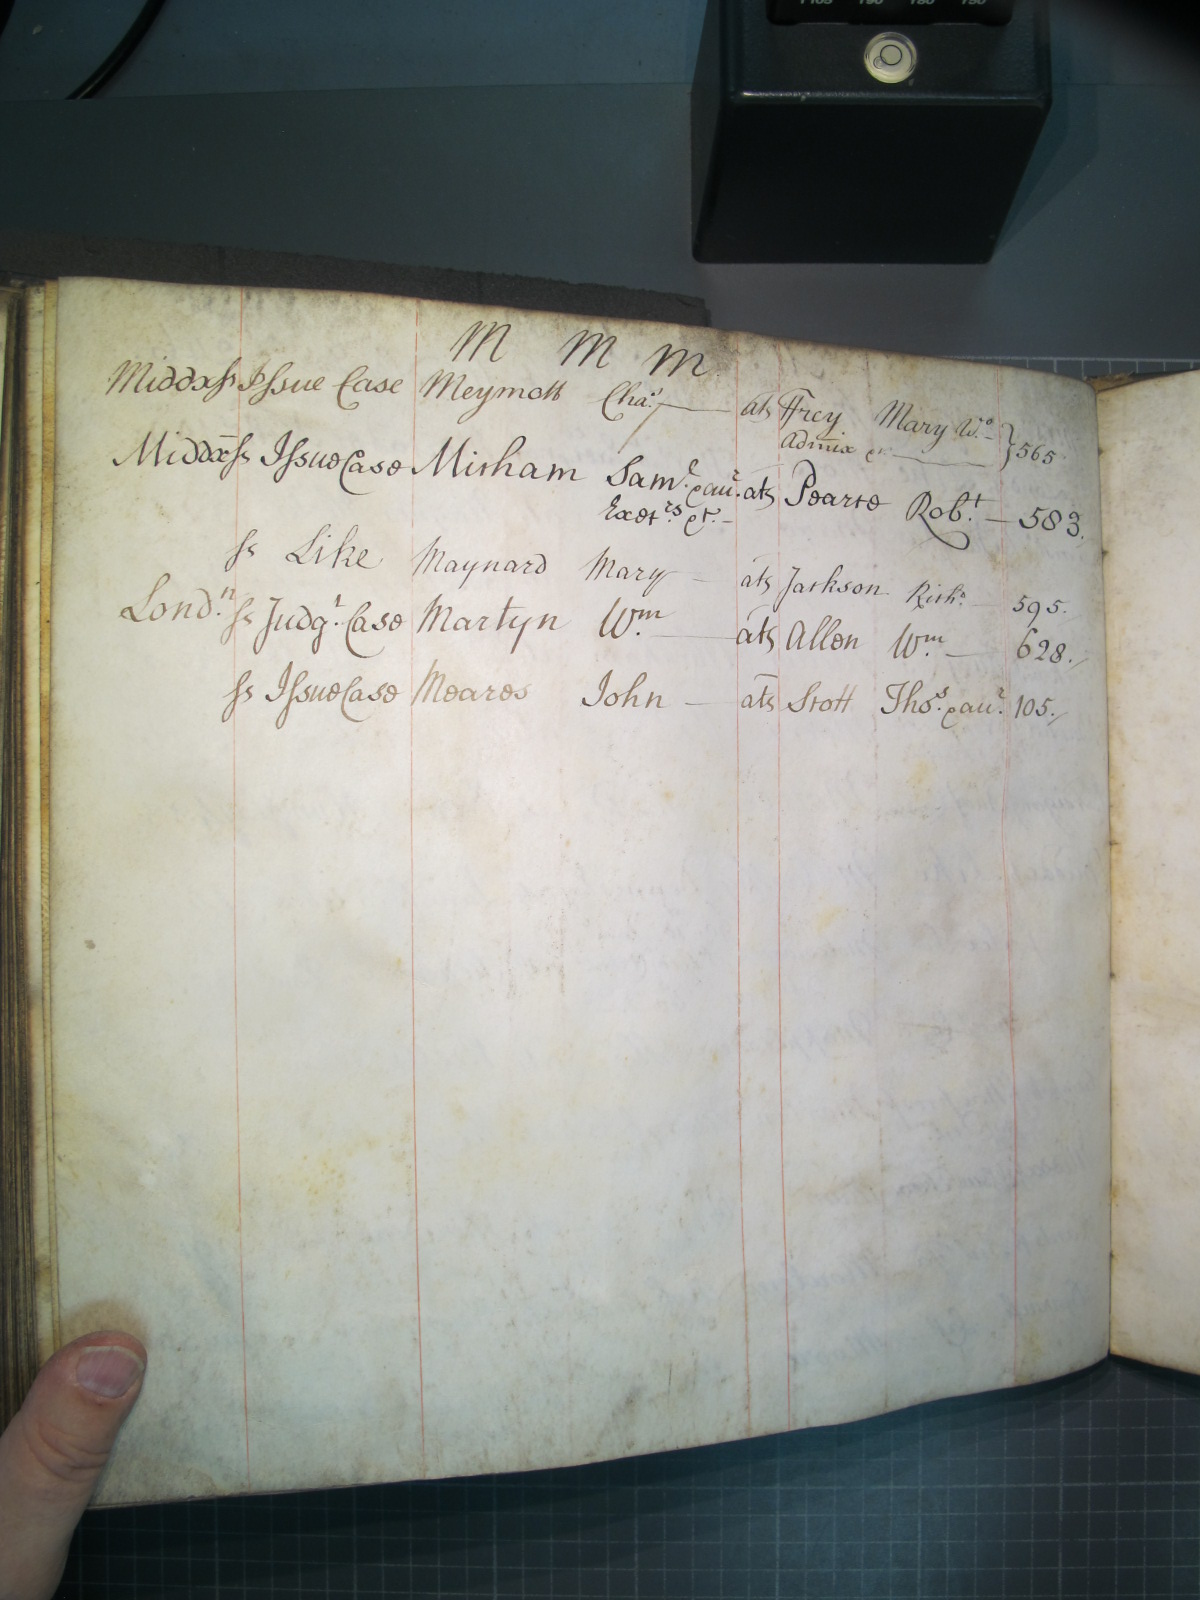 M M M
Middx ss Issue Case Meymott Cha.s at Ffrey Mary W.o
Admix &c. } 565
Middx ss Issue Case Misham Sam.l & au.r ats Pearce Rob.t 583.
Exet.rs &c.
ss Like Maynard Mary ats Jackson Rich.d 595.
Lond.n ss Judg.t Case Martyn W.m ats Allen W.m 628.
ss Issue Case Meares John ats Scott Tho.s & au.r 105.